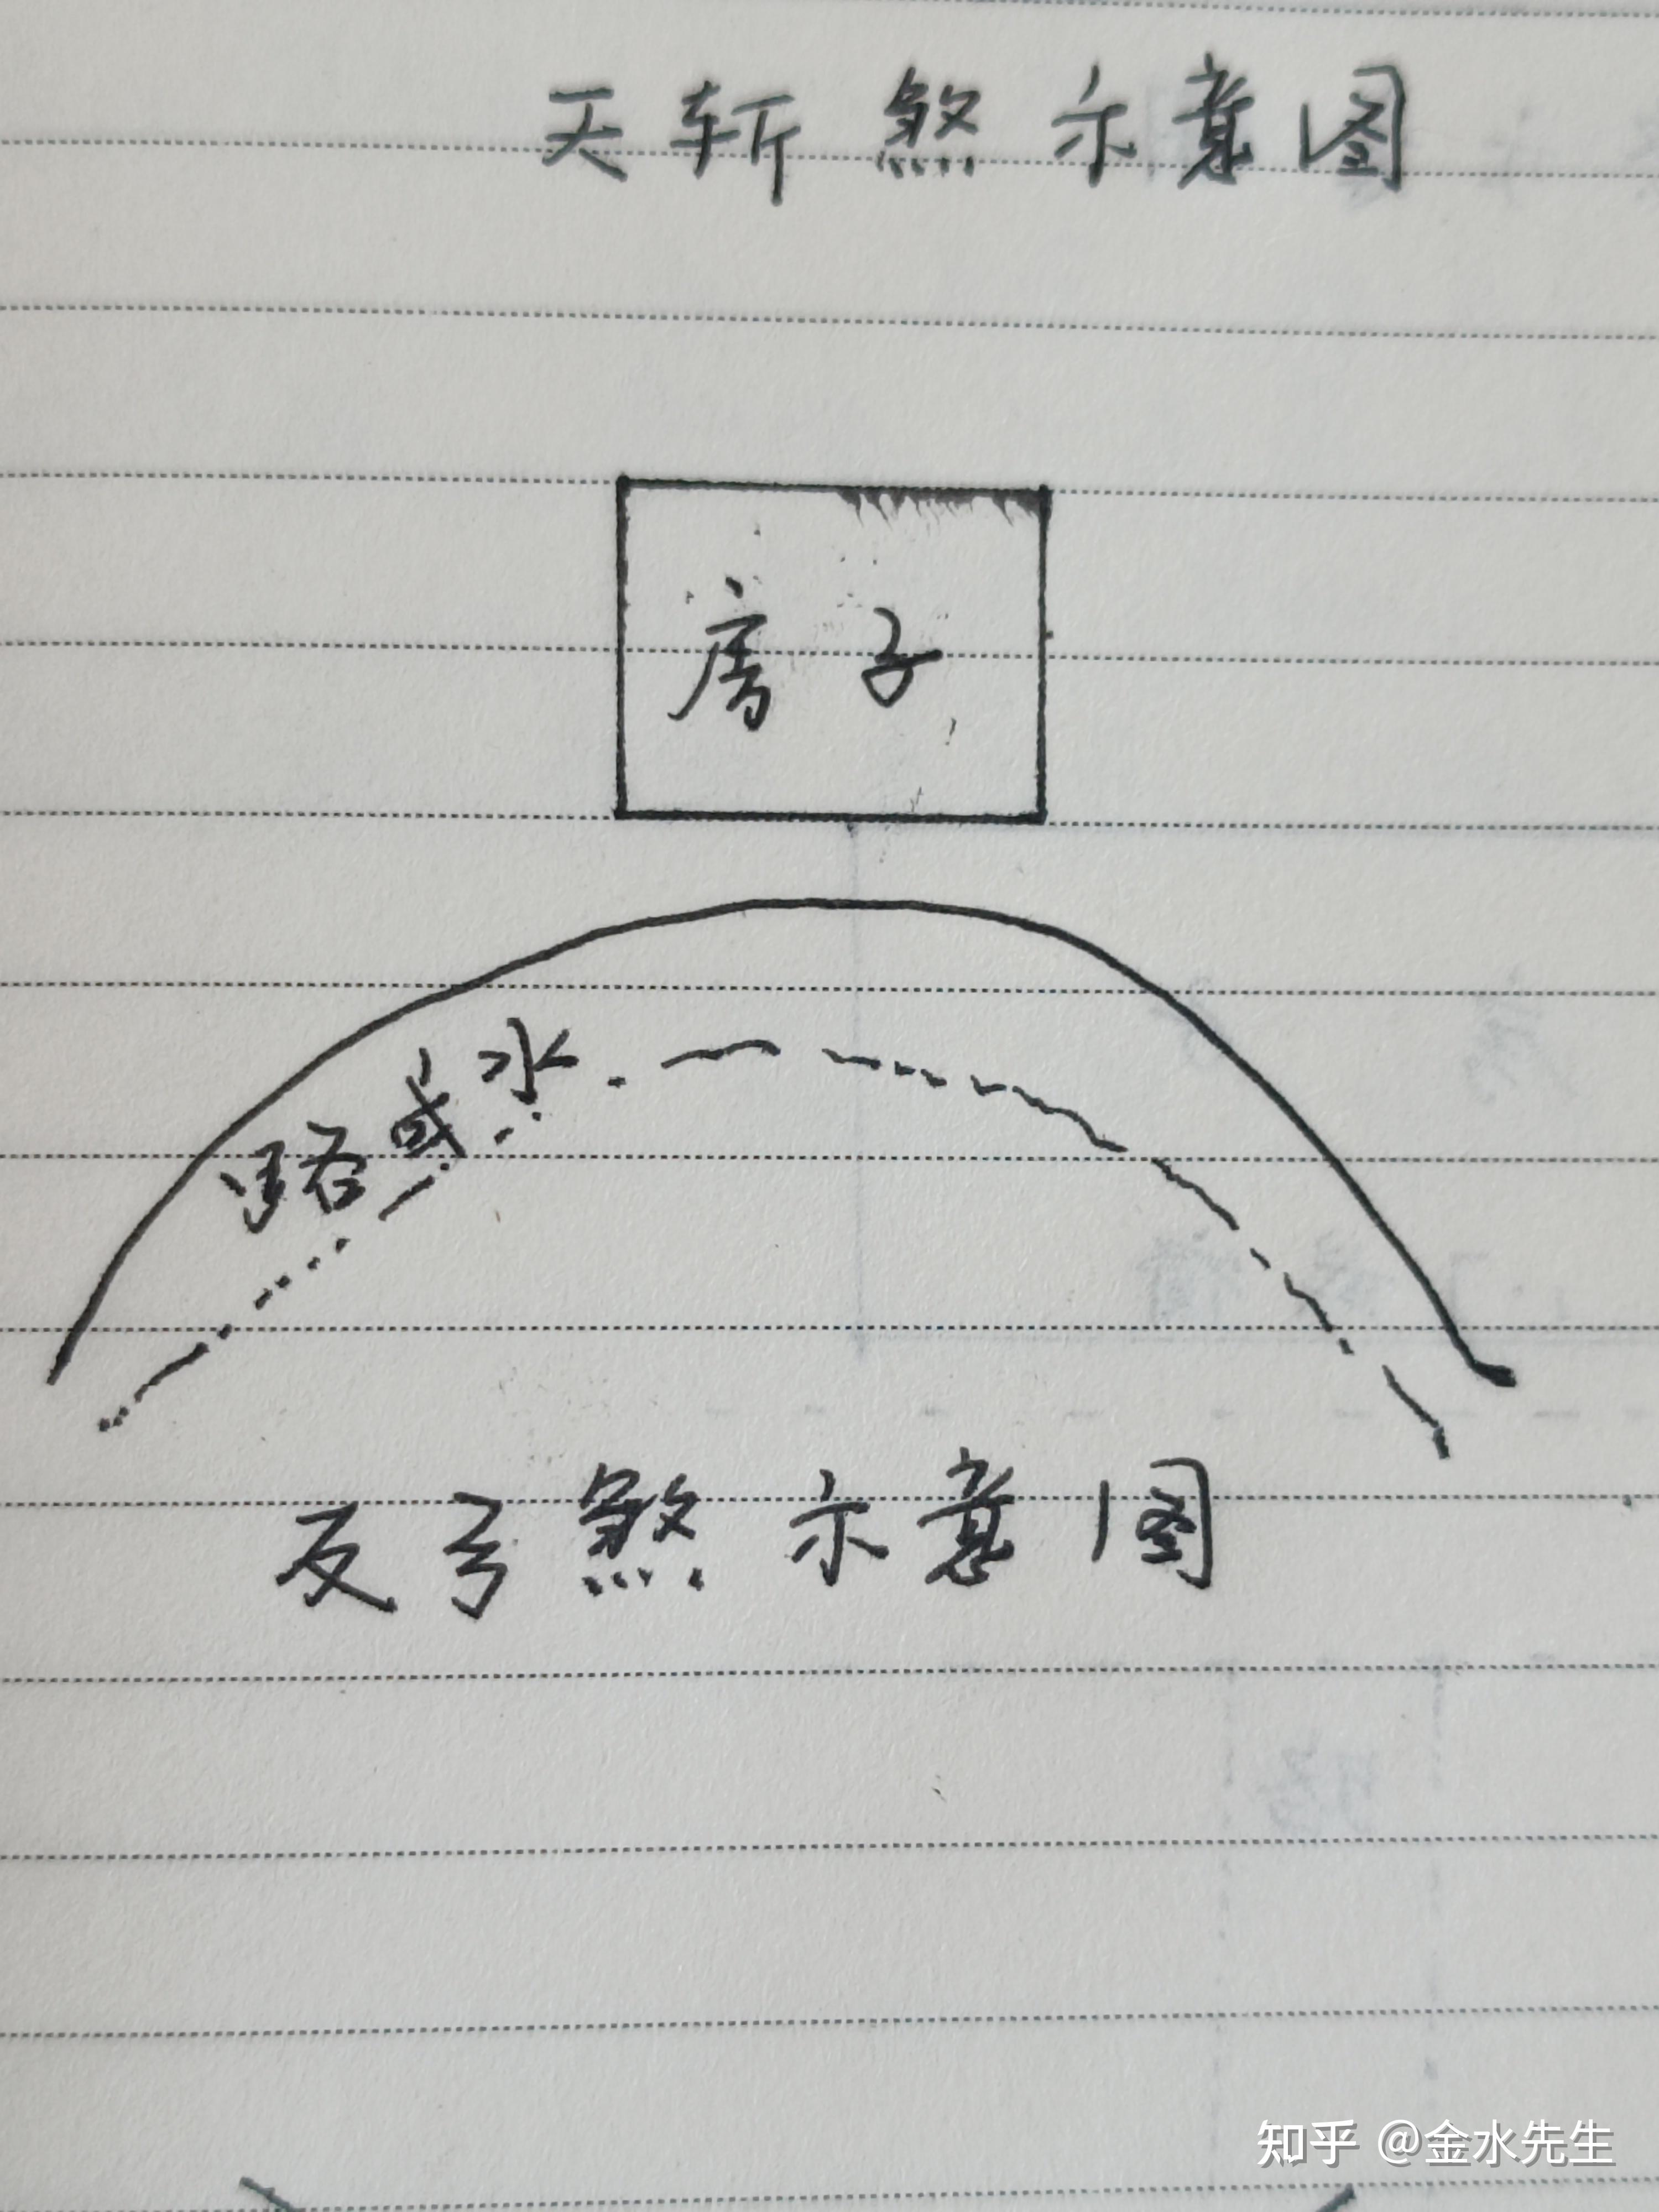 天斩煞示意图
房子
路或水
反弓煞示意图
知乎 @金水先生